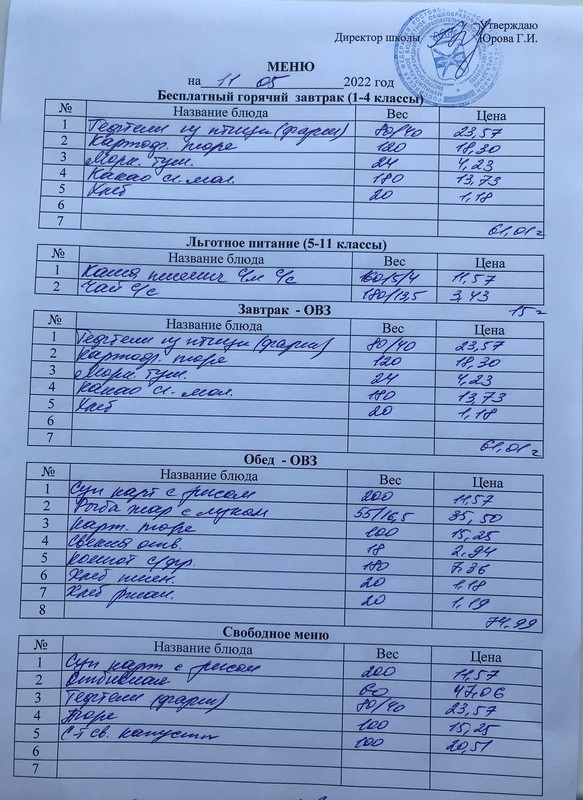 Утверждаю
Директор школы Юрова Г.И.
МЕНЮ
на 11 05 2022 год
Бесплатный горячий завтрак (1-4 классы)
№ Название блюда Вес Цена
1 Тефтели из птицы (фарш) 80/40 23,57
2 Картоф. пюре 120 18,30
3 Морк. туш. 24 4,23
4 Какао сг. мол. 180 13,73
5 Хлеб 20 1,18
6
7 61,01
Льготное питание (5-11 классы)
№ Название блюда Вес Цена
1 Каша пшенич с/м с/с 160/5/4 11,57
2 Чай с/с 180/13,5 3,43
15
Завтрак - ОВЗ
№ Название блюда Вес Цена
1 Тефтели из птицы (фарш) 80/40 23,57
2 Картоф. пюре 120 18,30
3 Морк. туш. 24 4,23
4 Какао сг. мол. 180 13,73
5 Хлеб 20 1,18
6
7 61,01
Обед - ОВЗ
№ Название блюда Вес Цена
1 Суп карт с рисом 200 11,57
2 Рыба жар с луком 55/16,5 35,50
3 Карт. пюре 100 15,25
4 Свекла отв. 18 2,94
5 Компот с/фр. 180 7,36
6 Хлеб пшен. 20 1,18
7 Хлеб ржан. 20 1,19
8 74,99
Свободное меню
№ Название блюда Вес Цена
1 Суп карт с рисом 200 11,57
2 Отбивная 60 47,06
3 Тефтели (фарш) 80/40 23,57
4 Пюре 100 15,25
5 С-т св. капусты 100 20,51
6
7